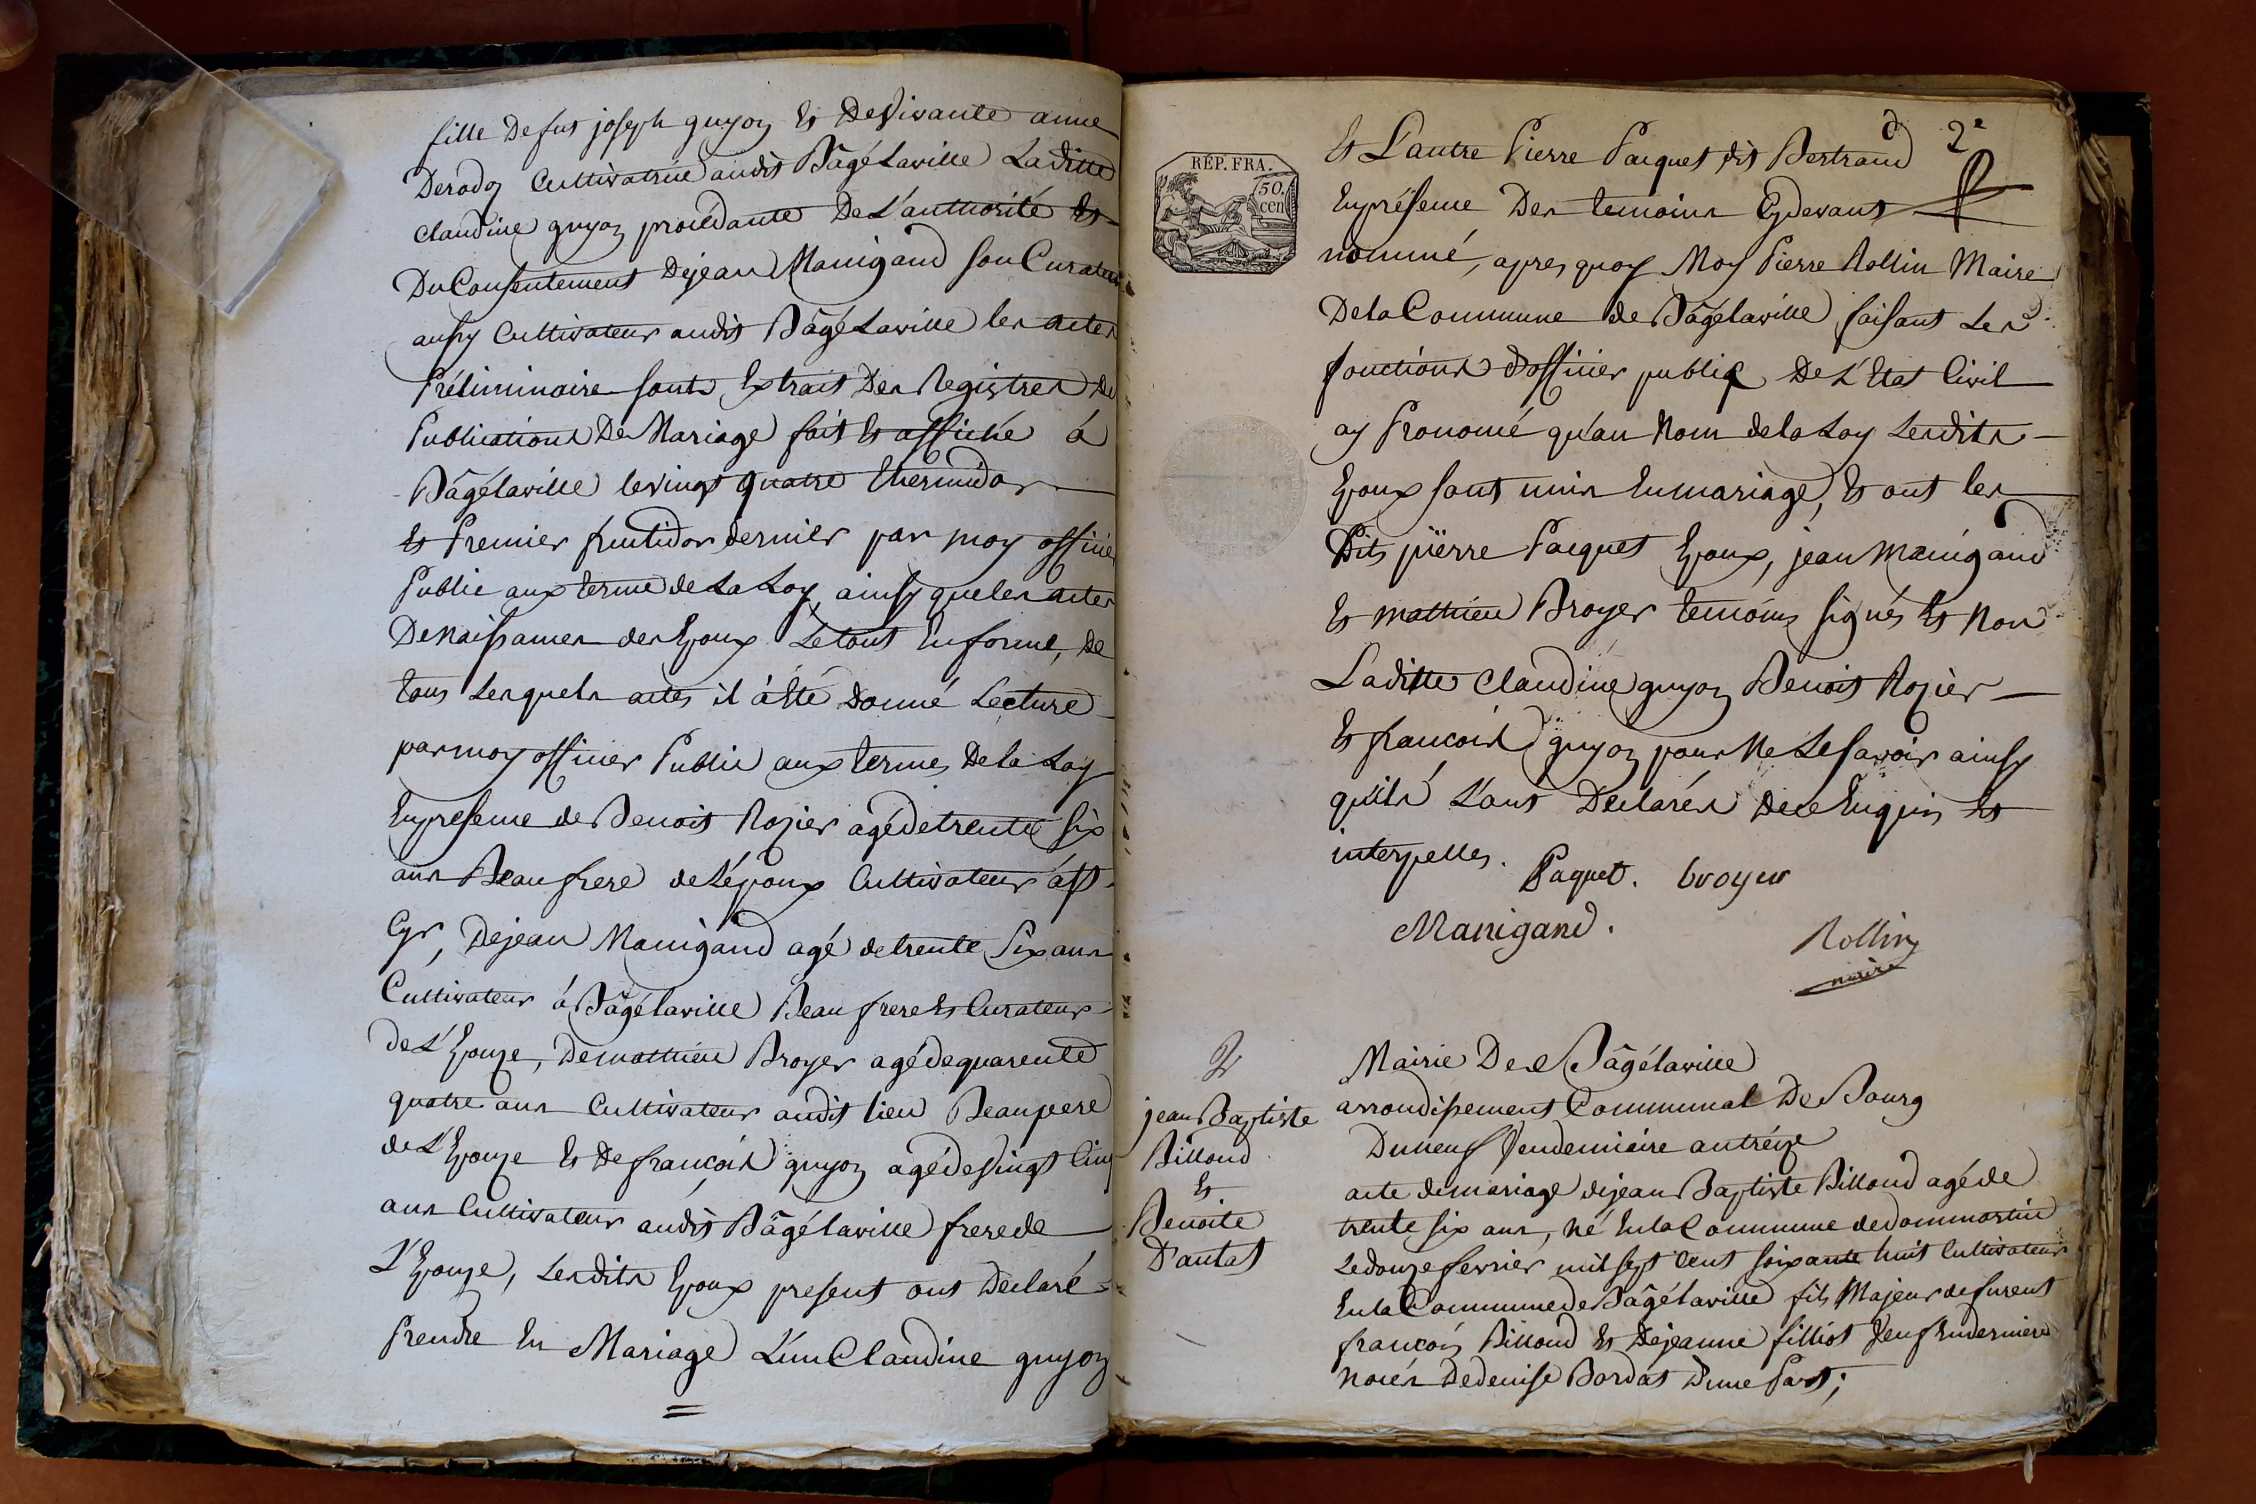 fille Defut joseph guyon Et DeVivante anne
Derodon Cultivatrice audit Bâgé Laville Laditte
claudine guyon procedante De L'authorité Et
Du Consentement Dejean Manigand son Curateur
aussy Cultivateur audit Bâgé Laville les actes
Préliminaire sonts Extrait Des Registres de
Publications De Mariage fait Et affiché á
Bâgélaville levingt quatre thermidor
Et Premier fructidor dernier par moy officier
Public aux terme de La Loy ainsy queles actes
De naissances des Epoux Letout Enforme, De
tous Lesquels actes il á Eté donné Lecture
par moy officier Public aux termes De la Loy
Enpresence de Benoit Rozier agé de trente six
ans Beaufrere de Lépoux Cultivateur á St
Cyr, Dejean Manigand agé de trente Six ans
Cultivateur á Bâgélaville Beaufrere Et Curateur
de L'Epouze, De mathieu Broyer agé de quarente
quatre ans Cultivateur audit lieu Beaupere
de L'Epouze Et De francois guyon agé de Vingt Cinq
ans Cultivateur audit Bâgélaville frere de
L'Epouze, Lesdits Epoux present ont Declaré
Prendre En Mariage L'un Claudine guyon
RÉP. FRA.
50. cen
d 2e
Et L'autre Pierre Paquet dit Bertrand
Enprésence Des temoins Cydevant
nommé, apres quoy Moy Pierre Rollin Maire
De la Commune de Bâgélaville faisant Les
fonctions d'officier publiq De L'Etat Civil
ay Pronomé qu'au Nom de la Loy Lesdits
Epoux sont unis Enmariage, Et ont les
Dits pierre Paquet Epoux, jean Manigand
Et mathieu Broyer temoins signés Et Non
Laditte claudine guyon Benoit Rozier
Et francois guyon pour Ne Le savoir ainsy
qu'ils L'ont Declarés De ce Enquis Et
interpelles.
Paquet. broyer
Manigand.
Rollin
maire
2e
jean Baptiste
Billoud
Et
Benoite
Dautat
Mairie De Bâgélaville
arrondissement Communal De Bourg
Du neuf Vendemiaire an tréize
acte de mariage dejean Baptiste Billoud agé de
trente six ans, Né En la Commune de dommartin
Le douze fevrier mil sept cent soixante huit Cultivateur
En la Commune de Bâgélaville fils Majeur defurent
francois Billoud Et Dejeanne filliot Veuf Enderniere
Nocés De denise Bordat D'une Part;